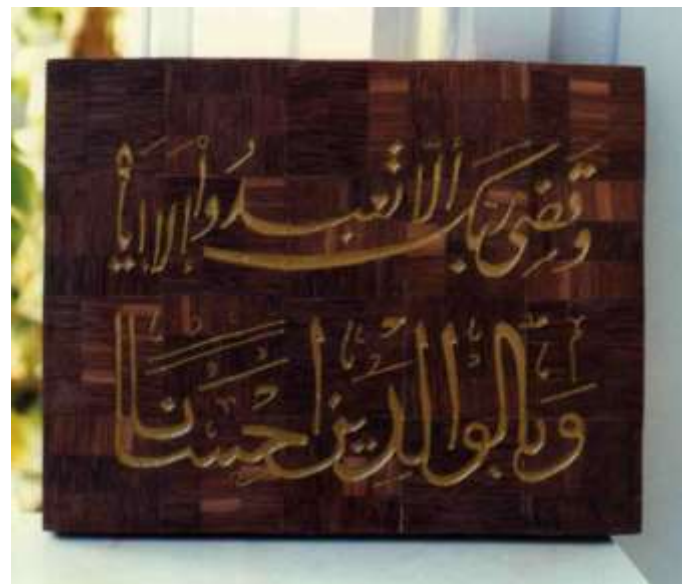 وَقَضَى رَبُّكَ أَلَّا تَعْبُدُوا إِلَّا إِيَّاهُ
وَبِالْوَالِدَيْنِ إِحْسَانًا